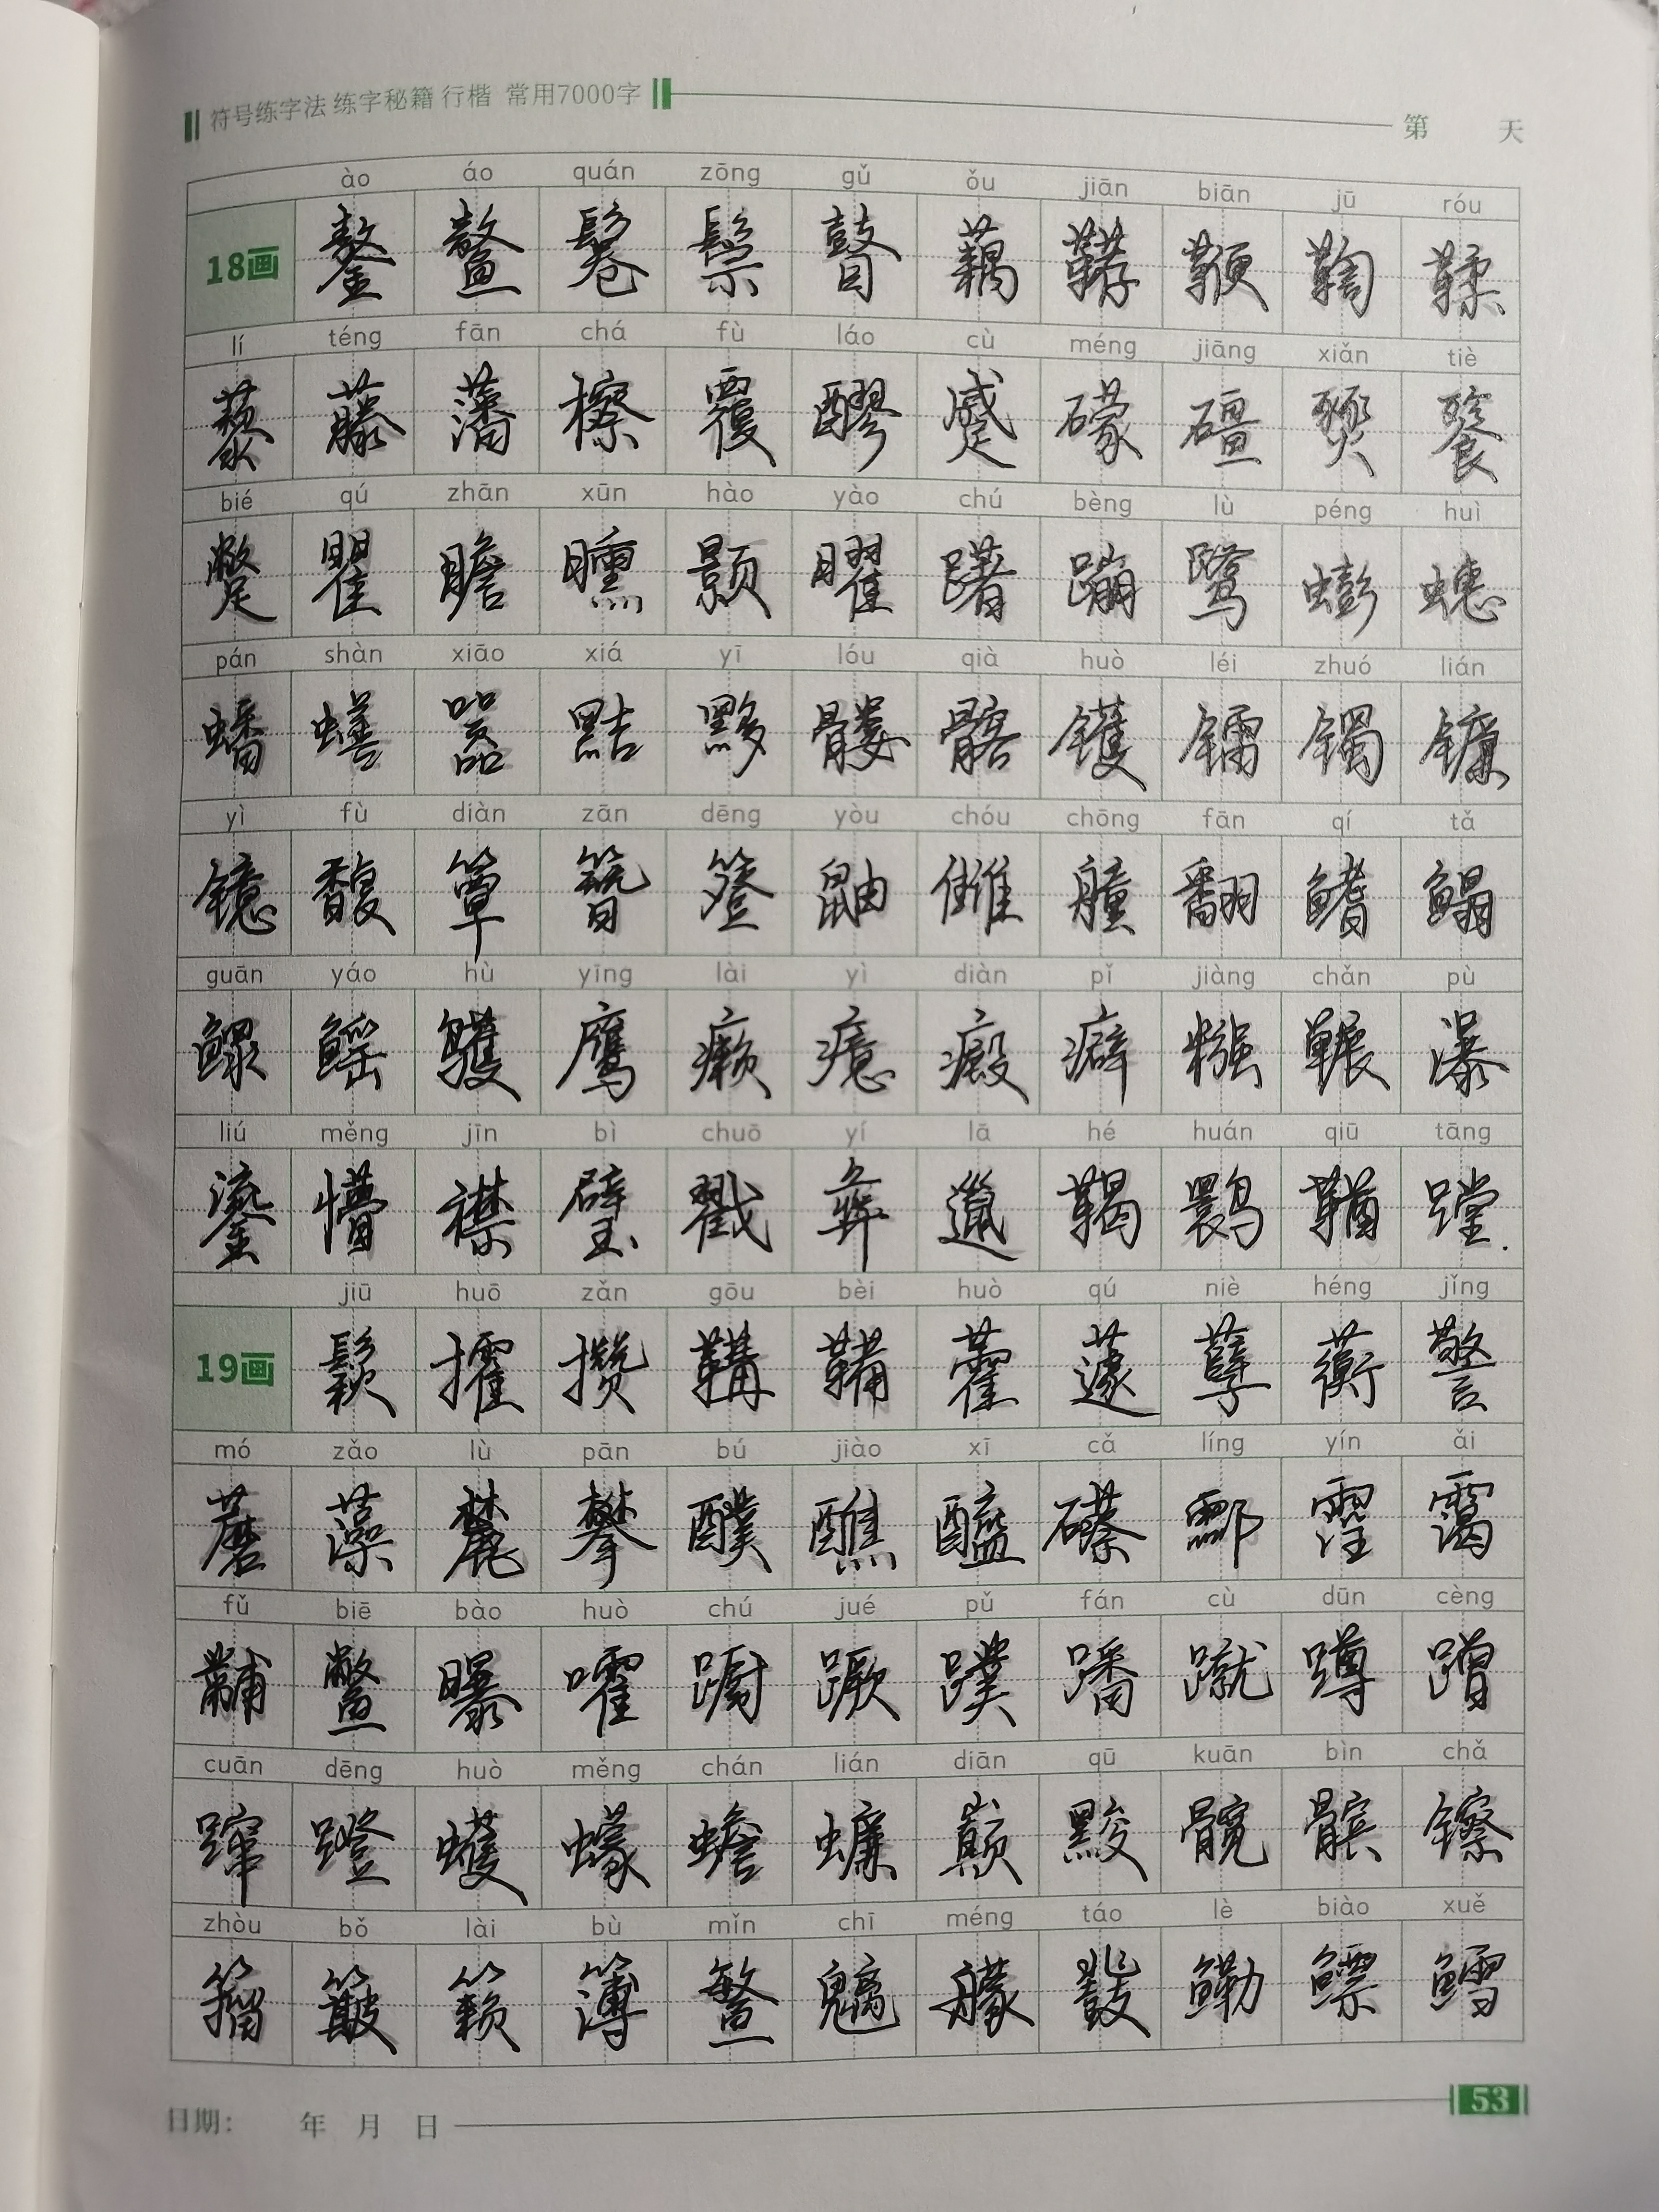 符号练字法 练字秘籍 行楷 常用7000字 第 天
ào áo quán zōng gǔ ǒu jiān biān jū róu
18画 鏊 鳌 鬈 鬃 瞽 藕 鞯 鞭 鞠 鞣
lí téng fān chá fù láo cù méng jiāng xiǎn tiè
藜 藤 藩 檫 覆 醪 蹙 礞 礓 燹 餮
bié qú zhān xūn hào yào chú bèng lù péng huì
蹩 瞿 瞻 曛 颢 曜 躇 蹦 鹭 蟛 蟪
pán shàn xiāo xiá yī lóu qià huò léi zhuó lián
蟠 蟮 嚣 黠 黟 髅 髂 镬 镭 镯 镰
yì fù diàn zān dēng yòu chóu chōng fān qí tǎ
镱 馥 簟 簪 簦 鼬 雠 艟 翻 鳍 鳎
guān yáo hù yīng lài yì diàn pǐ jiàng chǎn pù
鳏 鳐 鹱 鹰 癞 癔 癜 癖 糨 冁 瀑
liú měng jīn bì chuō yí lā hé huán qiū tāng
鎏 懵 襟 璧 戳 彝 邋 鞨 鹮 鞧 蹚
jiū huō zǎn gōu bèi huò qú niè héng jǐng
19画 鬏 攉 攒 鞲 鞴 藿 蘧 孽 蘅 警
mó zǎo lù pān bú jiào xī cǎ líng yín ǎi
蘑 藻 麓 攀 醭 醮 醯 礤 酃 霪 霭
fǔ biē bào huò chú jué pǔ fán cù dūn cèng
黼 鳖 曝 嚯 蹰 蹶 蹼 蹯 蹴 蹲 蹭
cuān dēng huò měng chán lián diān qū kuān bìn chǎ
蹿 蹬 蠖 蠓 蟾 蠊 巅 黢 髋 髌 镲
zhòu bǒ lài bù mǐn chī méng táo lè biào xuě
籀 簸 籁 簿 鳘 魑 艨 鼗 鳓 鳔 鳕
日期: 年 月 日 53